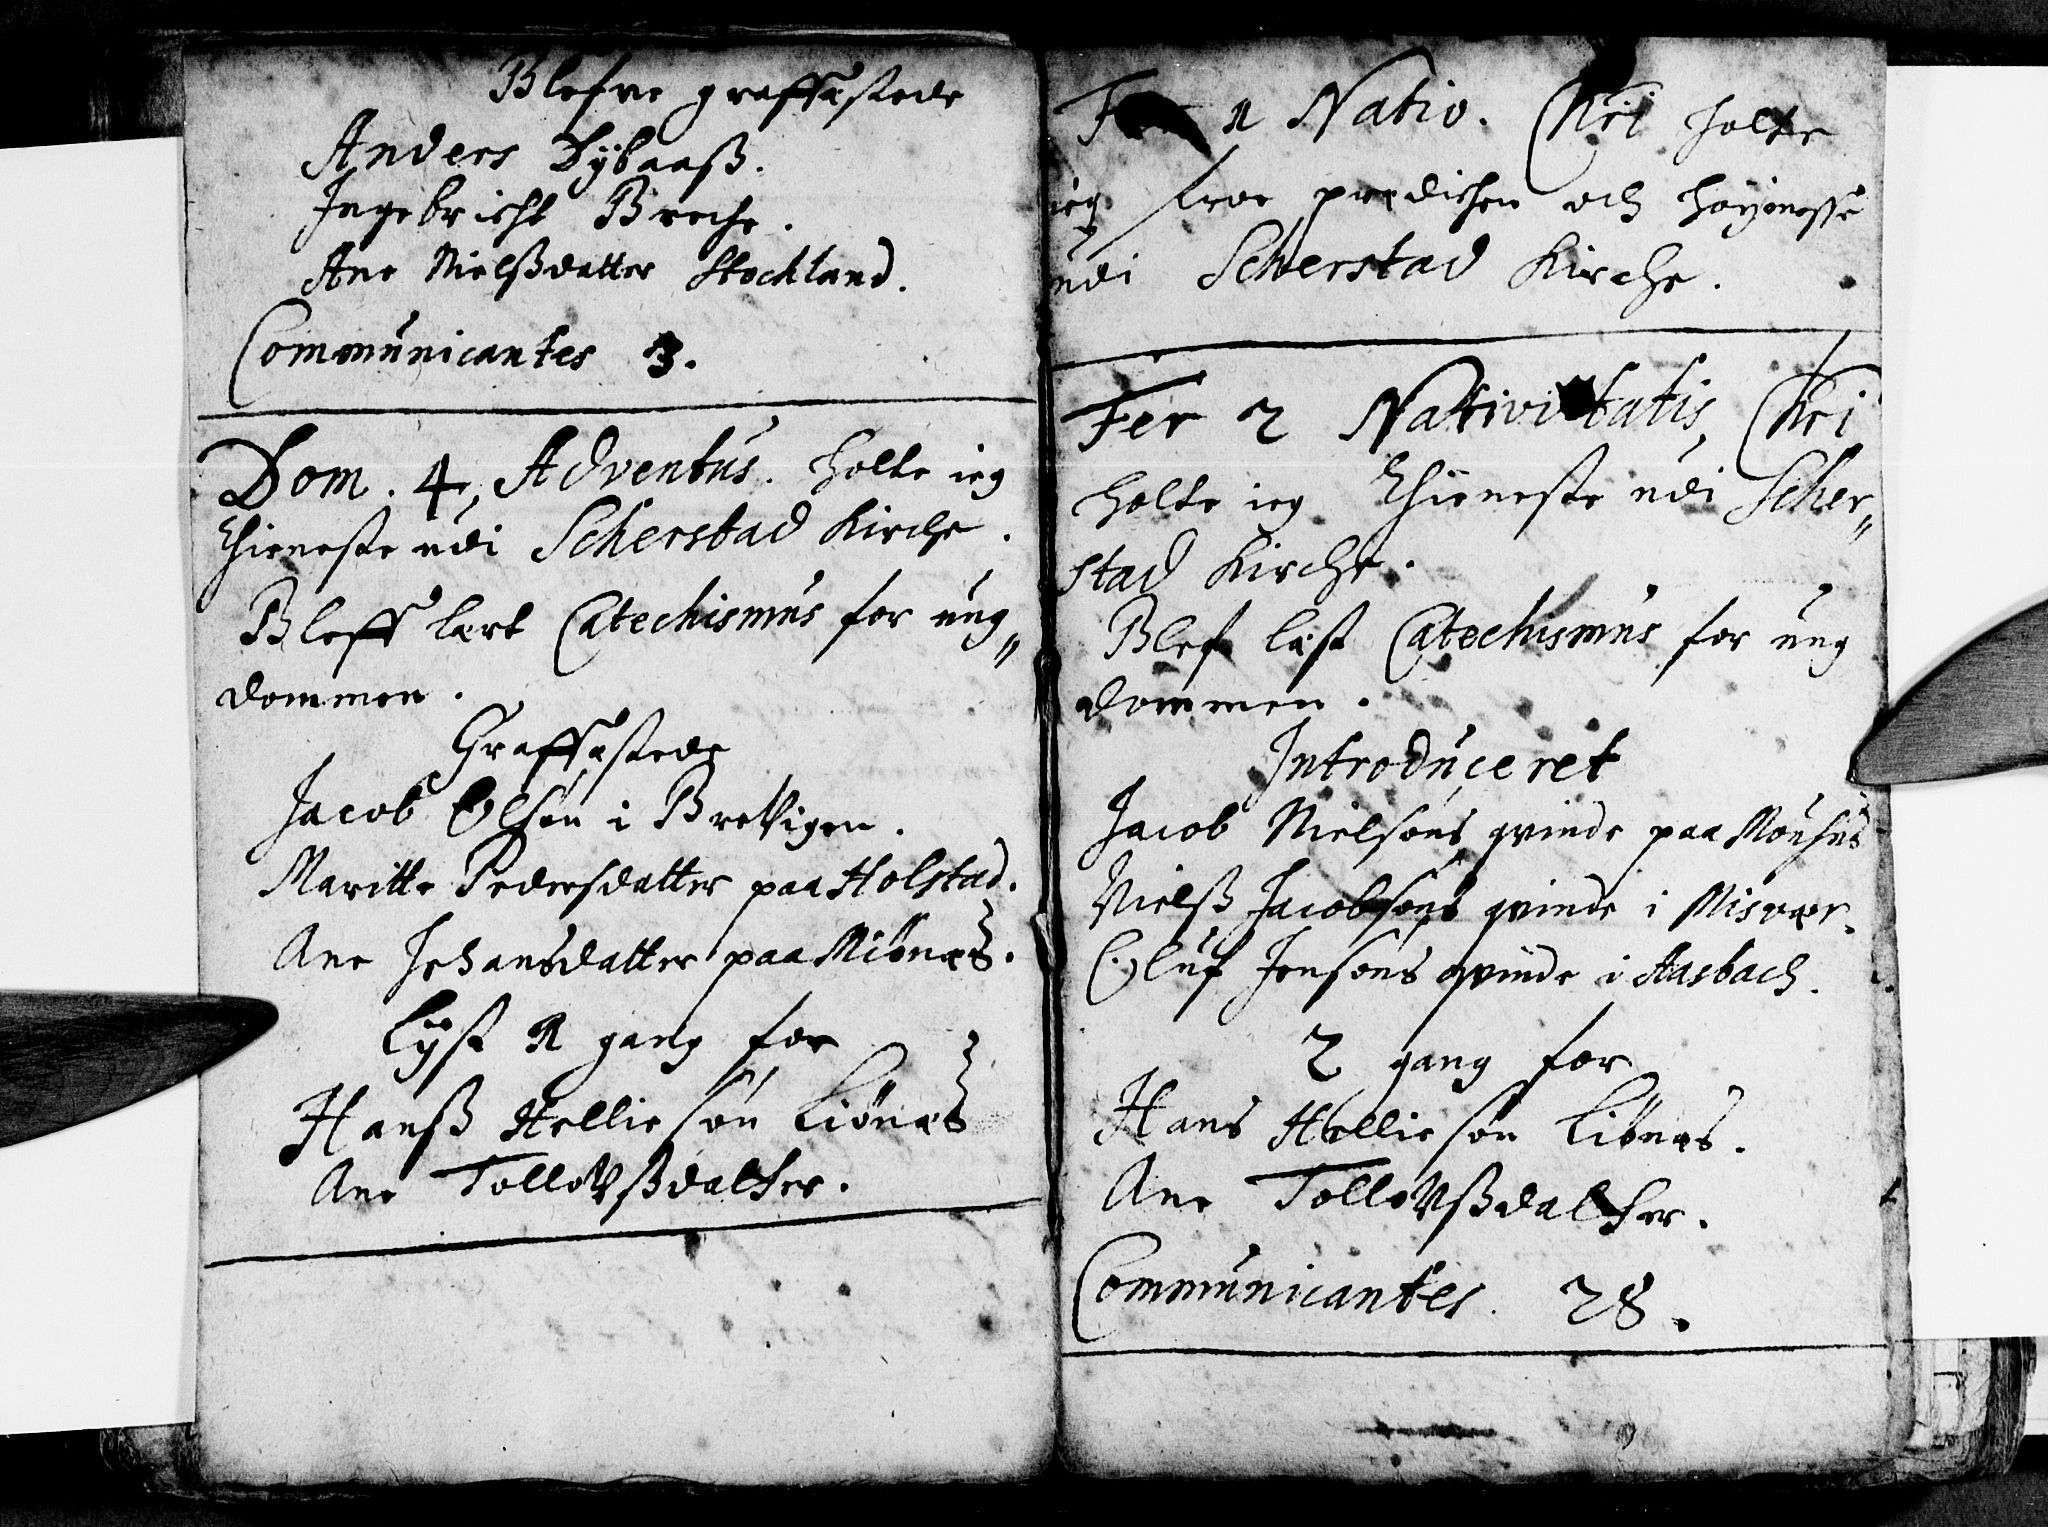 Blefve graffæstede
Anders Dybaaß.
Ingebricht Breche.
Ane Nielßdatter Stockland.
Communicantes 3.
Dom. 4, Adventus. holte ieg
thieneste udi Scherstad Kirche.
Bleff lært Catechismus for ung„
dommen.
Graffæstede
Jacob Olsøn i Brevigen.
Maritte Pedersdatter paa Holstad.
Ane Johansdatter paa Miønæs.
Lyst 1 gang for
Hanß Hellie søn Liønæs
Ane Tollovßdatter.
Fer 1 Nativ. Chri holte
ieg froe prædichen och høymesse
udi Scherstad Kirche.
Fer 2 Nativitatis, Chri
holte ieg thieneste udi Scher„
stad Kirche.
Blef læst Catechismus for ung
dommen.
Introduceret
Jacob Nielsøns qvinde paa
Nielß Jacobsøns qvinde i Misvær.
Oluf Jensøns qvinde i Aasbach.
2 gang for
Hans Hellie søn Liønæs.
Ane Tollovßdatter.
Communicantes. 28.